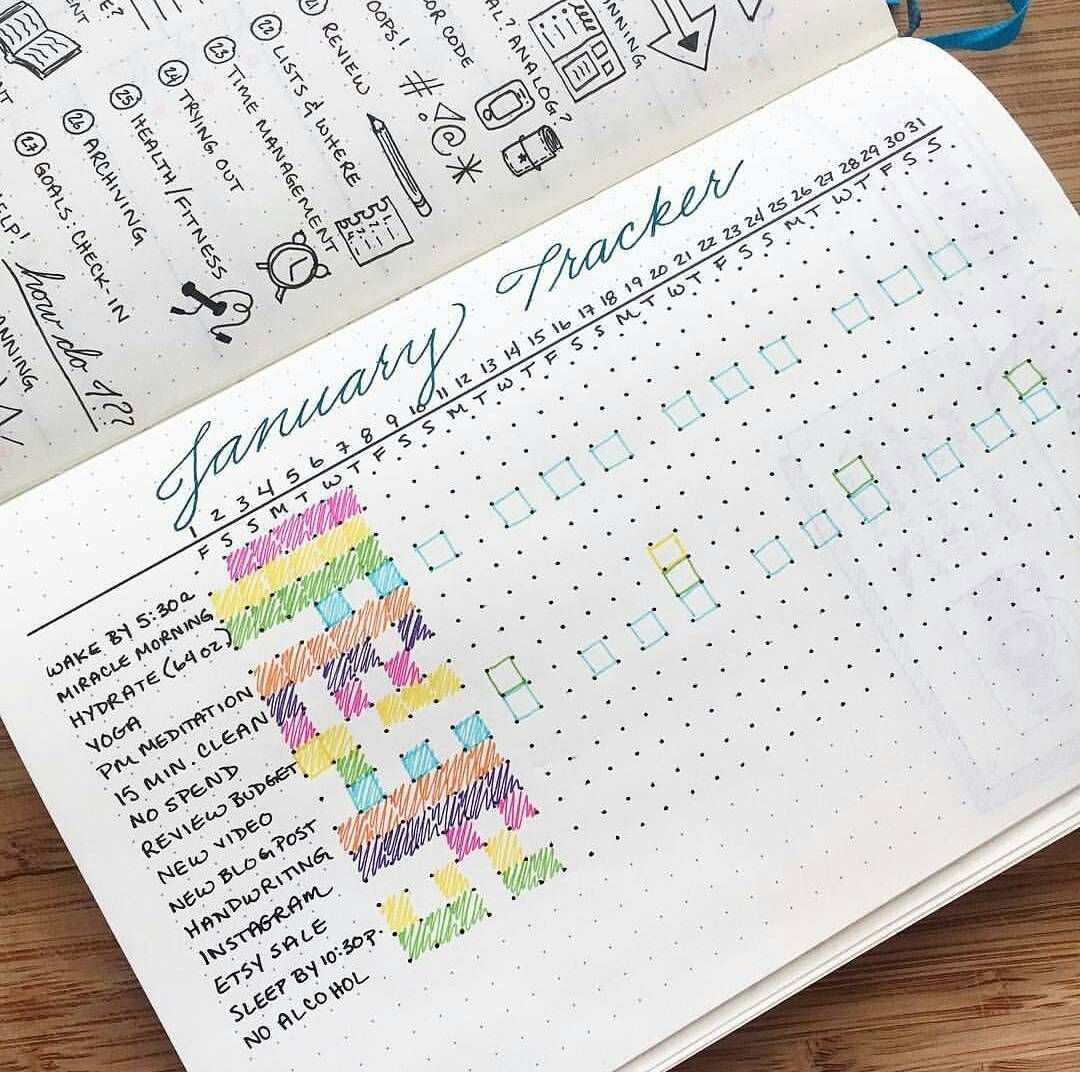 OOPS!
OR CODE
AL? ANALOG?
NNING
21 REVIEW
22 LISTS & WHERE
23 TIME MANAGEMENT
24 TRYING OUT
25 HEALTH/FITNESS
26 ARCHIVING
27 GOALS: CHECK-IN
ELP!
how do I??
ANNING
#!@*
January Tracker
1 2 3 4 5 6 7 8 9 10 11 12 13 14 15 16 17 18 19 20 21 22 23 24 25 26 27 28 29 30 31
F S S M T W T F S S M T W T F S S M T W T F S S M T W T F S S
WAKE BY 5:30a
MIRACLE MORNING
HYDRATE (64 OZ)
YOGA
PM MEDITATION
15 MIN. CLEAN
NO SPEND
REVIEW BUDGET
NEW VIDEO
NEW BLOG POST
HANDWRITING
INSTAGRAM
ETSY SALE
SLEEP BY 10:30p.
NO ALCOHOL